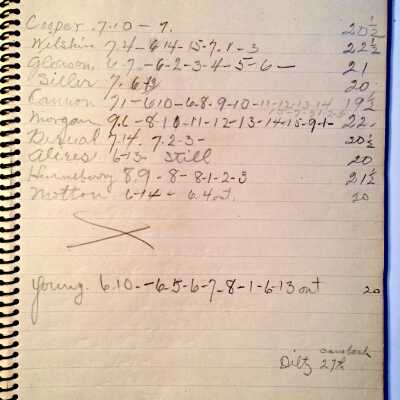 Cooper. 7.10 – 7. 20½
Wilshire 7.4 – 6.14-15-7.1-3 22½
Gleason 6.7. – 6-2-3-4-5-6 – 21
Siller 7. 6 20
Cannon 7.1 – 6.10-6.8-9-10-11-12-13-14 19½
Morgan 9.6 – 8.10-11-12-13-14-15-9-1- 22.
7.14. 7.2-3- 20½
Alires 6-13- Still 20
Hinneberry 8.9 – 8 – 8-1-2-3 21½
Motton 6-14 – 6.4 out. 20
Young. 6.10- -6.5-6-7-8-1-6-13 out 20
came back
Diltz 27th